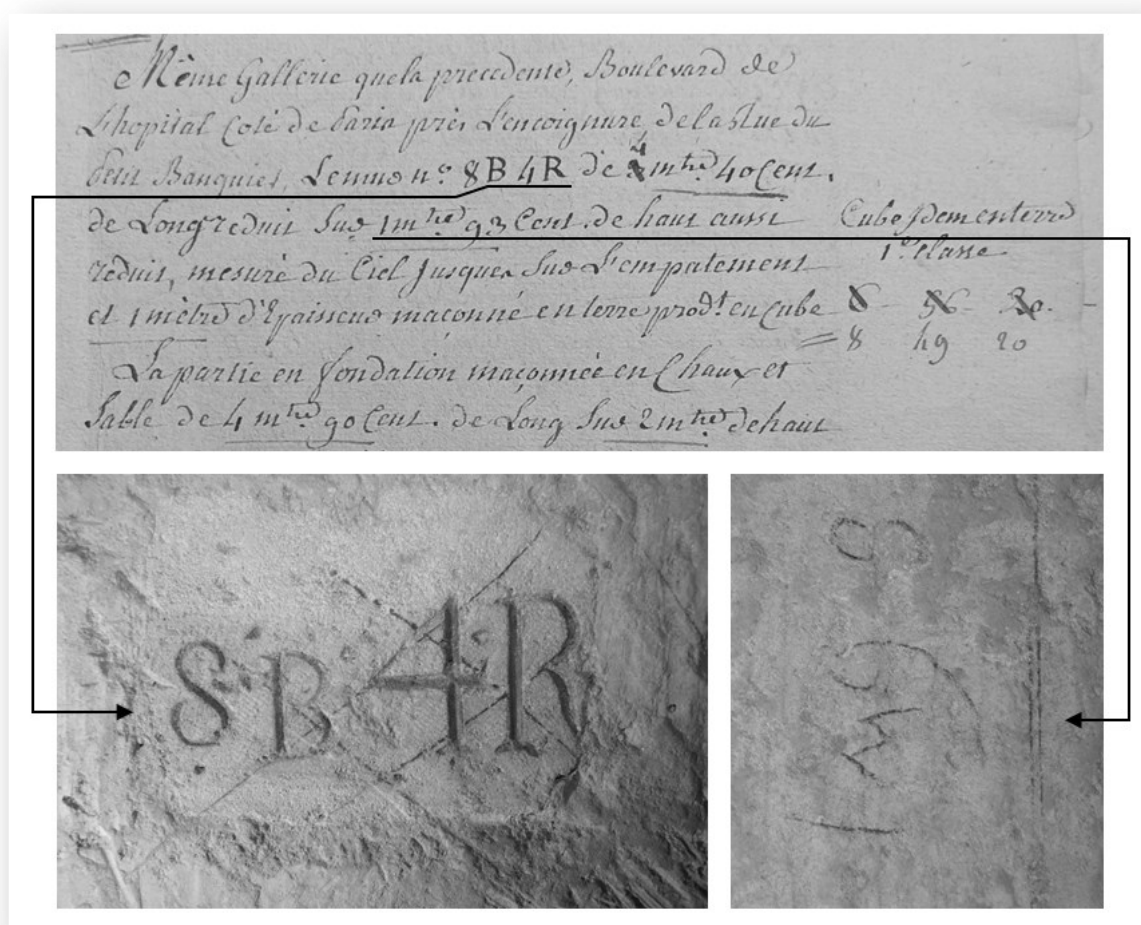 Même Gallerie que la precedente, Boulevard de
L'hopital Coté de Paris près L'encoignure de la Rue du
Petit Banquier, Le mur n.º 8B 4R de 4 mtre 40 Cent.
de Long reduit Sur 1 mtre 93 Cent. de haut aussi
Cube Idem en terre
1.re Classe
réduit, mesuré du Ciel Jusques Sur L'empatement
et 1 mètre d'Epaisseur maconné en terre prod.t en Cube 6 56 20.
= 8 49 20
La partie en fondation maçonnée en Chaux et
Sable de 4 mtre 90 Cent. de Long Sur 2 mtre de haut
8 B 4R
1 m 9 8